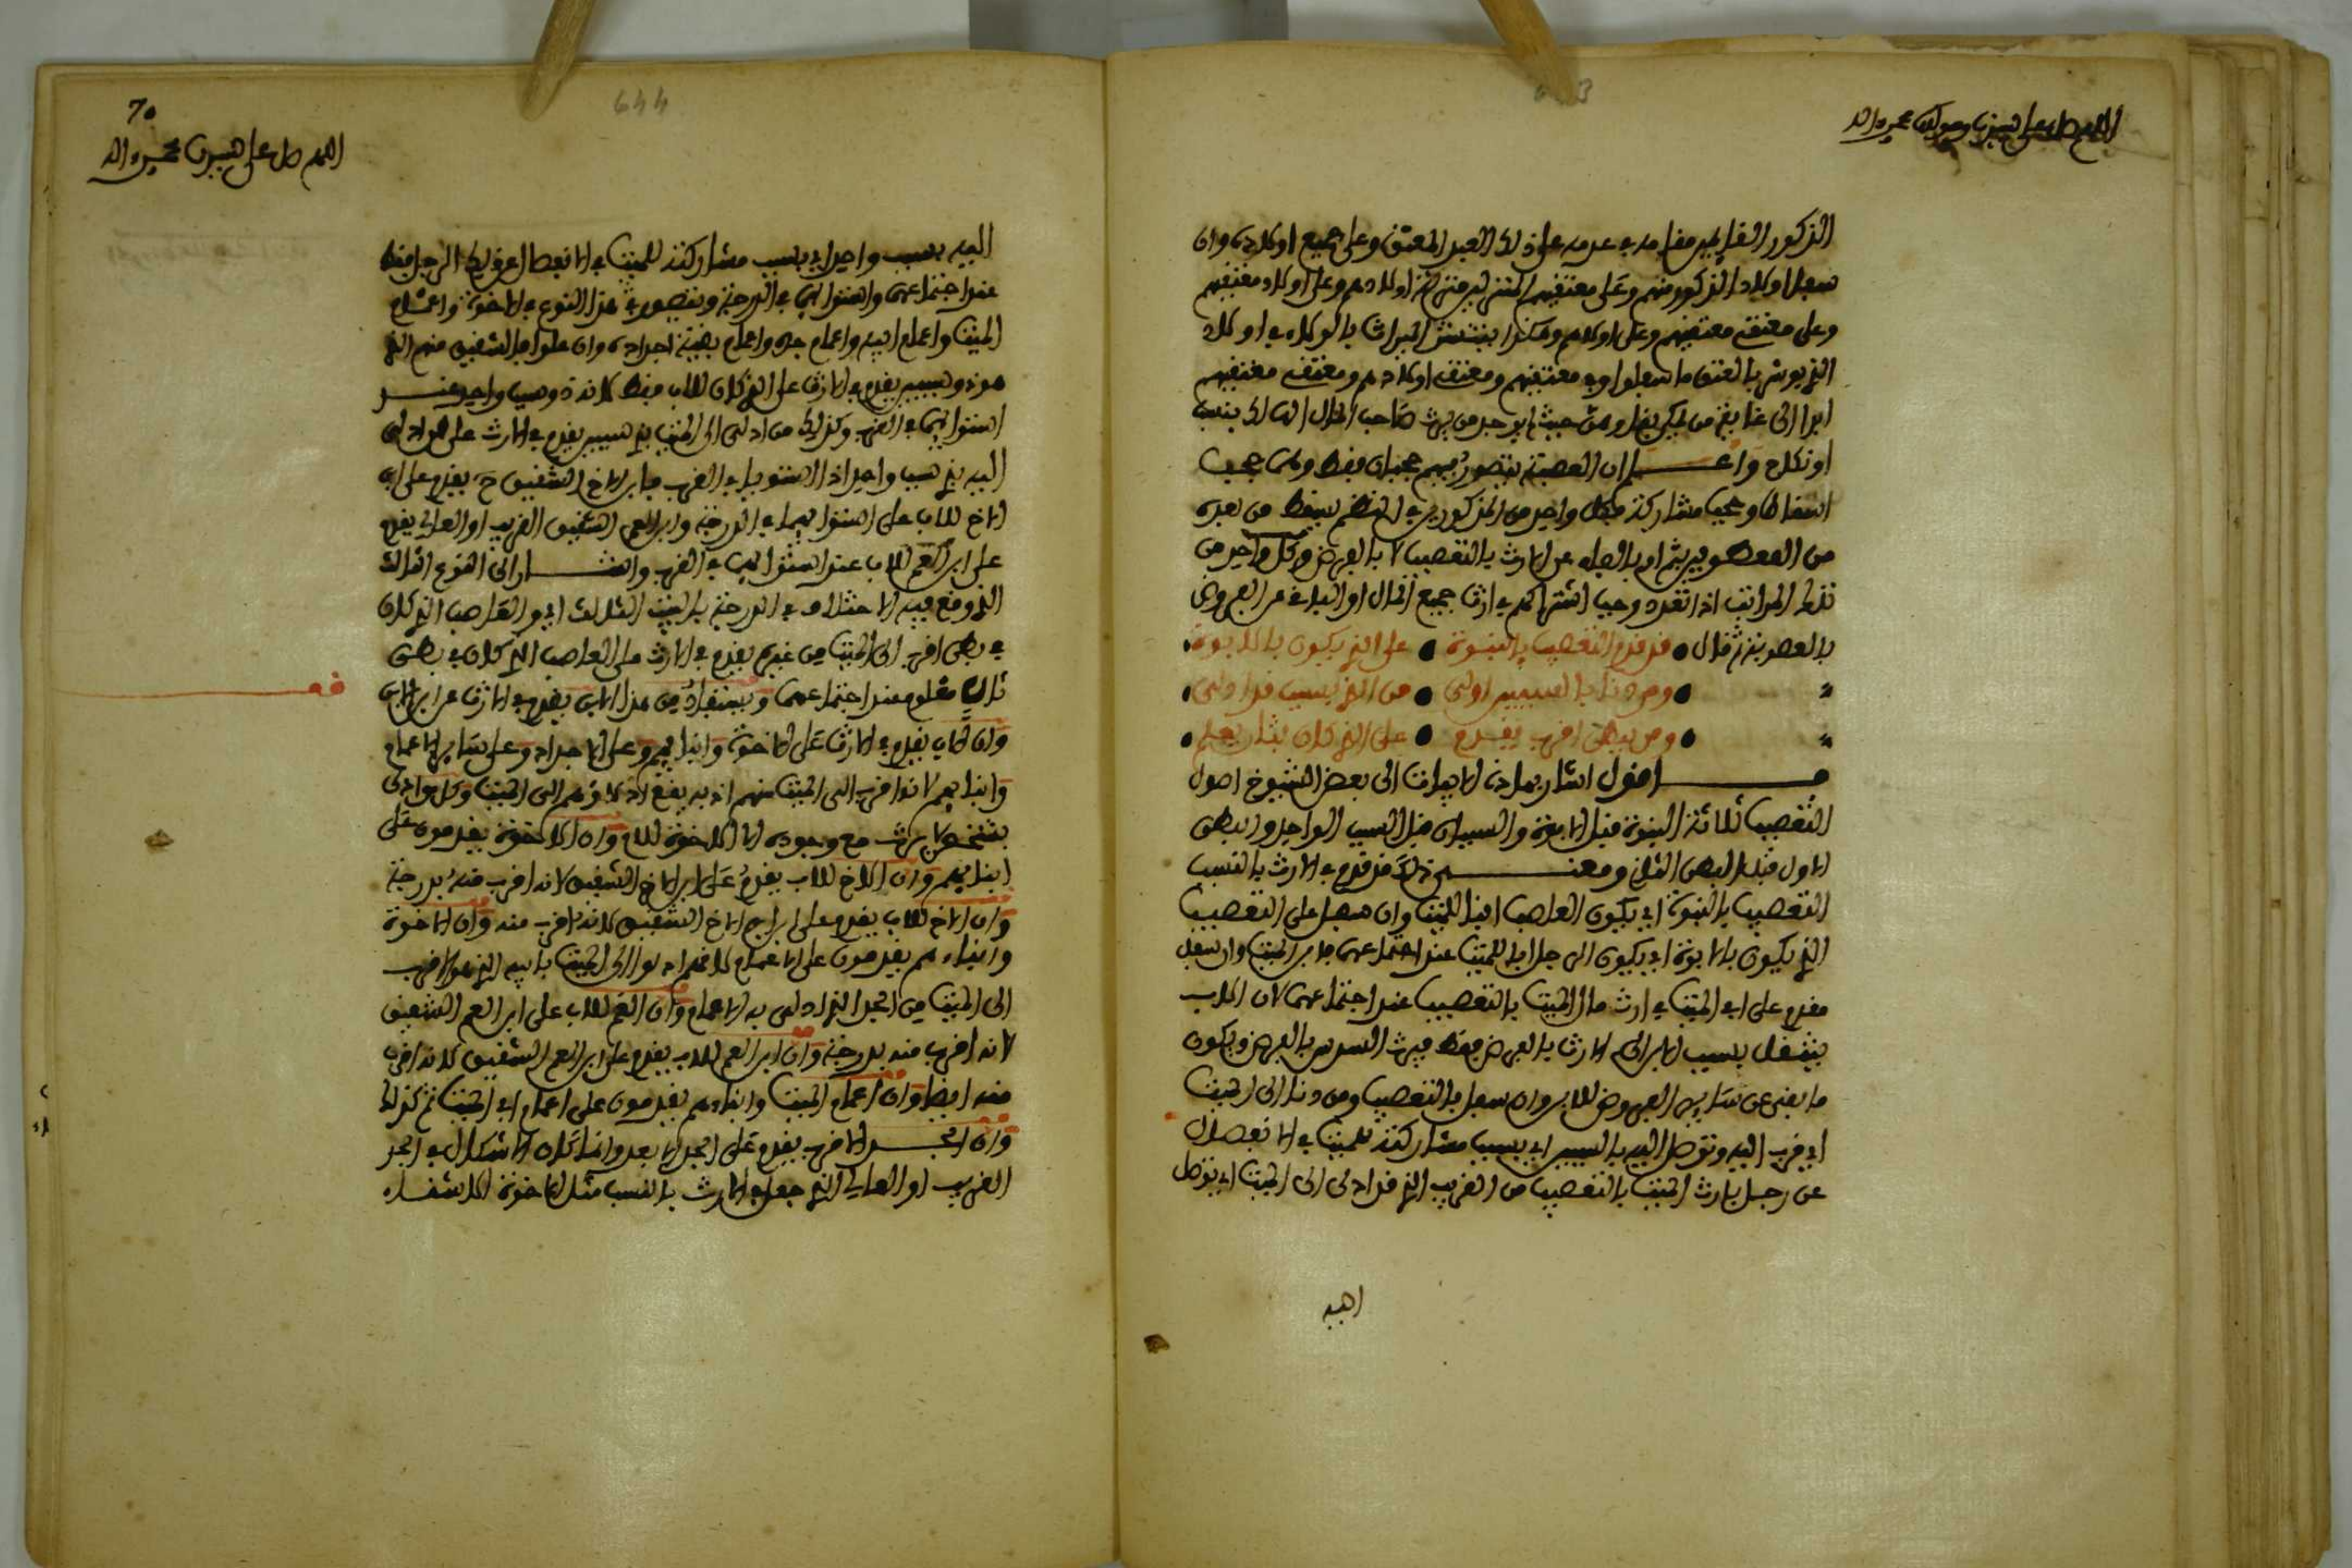 اللهم صل على سيدنا ومولانا محمد واله
الذكور القايمين مقامه في عدمه على ذلك العبد المعتق وعلى جميع اولاده وان
سفل اولاد الذكور منهم وعلى معتقهم المتنزلين منزلة اولادهم وعلى اولاد معتقهم
وعلى معتق معتقهم وعلى اولادهم وهكذا ينتشر الميراث بالولاء في اولاد
الذي يورث بالعتق ما سفلوا وفي معتقهم ومعتق اولادهم ومعتق معتقهم
ابدا الى غاية من لم يكن وحيث لم يوجد من يرث صاحب المال الهالك بنسب
او نكاح واعلم ان العصبة يتصور فيهم حجبان فقط وهما حجب
اسقاط وحجب مشاركة فكل واحد من المذكورين في النظم يسقط من بعده
من المعطوفين بثم او بالفاء عن الارث بالتعصيب لا بالفرض وكل واحد من
تلك المراتب اذا تعدد وجب اشتراكهم في ارث جميع المال او الباقي عن الفروض
بالعصوبة ثم قال • قد قدم التعصيب بالبنوة • على الذي يكون بالابوة •
• ومن دنا بالسببين اولى • من الذي بسبب قد ادلى •
• ومن ببطن اقرب يقدم • على الذي كان بثان يعلم •
اقول اشار بهاذه الابيات الى بعض الشيوخ اصول
التعصيب ثلاثة البنوة قبل الابوة والسببان قبل السبب الواحد والبطن
الاول قبل البطن الثاني ومعنى ذلك قد قدم في الارث بالنسب
التعصيب بالبنوة اي بكون العاصب ابنا للميت وان سفل على التعصيب
الذي يكون بالابوة اي بكون الرجل ابا للميت عند اجتماعهما فابن الميت وان سفل
مقدم على ابي الميت في ارث مال الميت بالتعصيب عند اجتماعهما لان الاب
ينتقل بسبب الابن الى الارث بالفرض فقط فيرث السدس بالفرض ويكون
ما بقي عن ساير الفروض للابن وان سفل بالتعصيب ومن دنا الى الميت
اي قرب اليه وتوصل اليه بالسببين اي بسبب مشاركته للميت في الانفصال
عن رجل بارث الميت بالتعصيب من القريب الذي قد ادلى الى الميت اي توصل
اليه
70
644
اللهم صل على سيدنا محمد واله
اليه بسبب واحد اي بسبب مشاركته للميت في الانفصال عن ذلك الرجل فقط
عند اجتماعهما واستوايهما في الدرجة ويتصور في هذا النوع في الاخوة واعمام
الميت واعمام ابيه واعمام جده واعمام بقية اجداده وان علوا فالشقيق منهم الذي
هو ذو سببين يقدم في الارث على الذي كان للاب فقط لانه ذو سبب واحد عند
استوايهما في القرب وكذلك من ادلى الى الميت بذي سببين يقدم في الارث على من ادلى
اليه بذي سبب واحد اذا استويا في القرب فابن الاخ الشقيق يقدم على ابن
الاخ للاب على استوايهما في الدرجة وابن العم الشقيق القريب او العالي يقدم
على ابن العم للاب عند استوايهما في القرب واشار الى النوع الثالث
الذي وقع فيه الاختلاف في الدرجة بالبيت الثالث اي والعاصب الذي كان
في بطن اقرب الى الميت من غيره يقدم في الارث على العاصب الذي كان في بطن
ثان معلوم عند اجتماعهما ويستفاد من هذا ان الابن يقدم في الارث عن ابن الابن
وان الاب يقدم في الارث على الاخوة وابنايهم وعلى الاجداد وعلى ساير الاعمام
وابنايهم لانه اقرب الى الميت منهم اذ به يقع ادلاؤهم الى الميت وكل من ادلى
بشخص لا يرث مع وجوده الا الاخوة للام وان الاخوة يقدمون على
ابنايهم وان الاخ للاب يقدم على ابن الاخ الشقيق لانه اقرب منه بدرجة
وان ابن الاخ للاب يقدم على ابن ابن الاخ الشقيق لانه اقرب منه وان الاخوة
وابناءهم يقدمون على الاعمام لانهم ادلوا الى الميت بابيه الذي هو اقرب
الى الميت من الجد الذي ادلى به الاعمام وان العم للاب على ابن العم الشقيق
لانه اقرب منه بدرجة وان ابن العم للاب يقدم على ابن ابن العم الشقيق لانه اقرب
منه ايضا وان اعمام الميت وابناءهم يقدمون على اعمام ابي الميت ثم كذلك
وان الجد الاقرب يقدم على الجد الابعد وانما كان الاشكال في الجد
القريب او العالي الذي جعل في الارث بالنسب مثل الاخوة الاشقاء